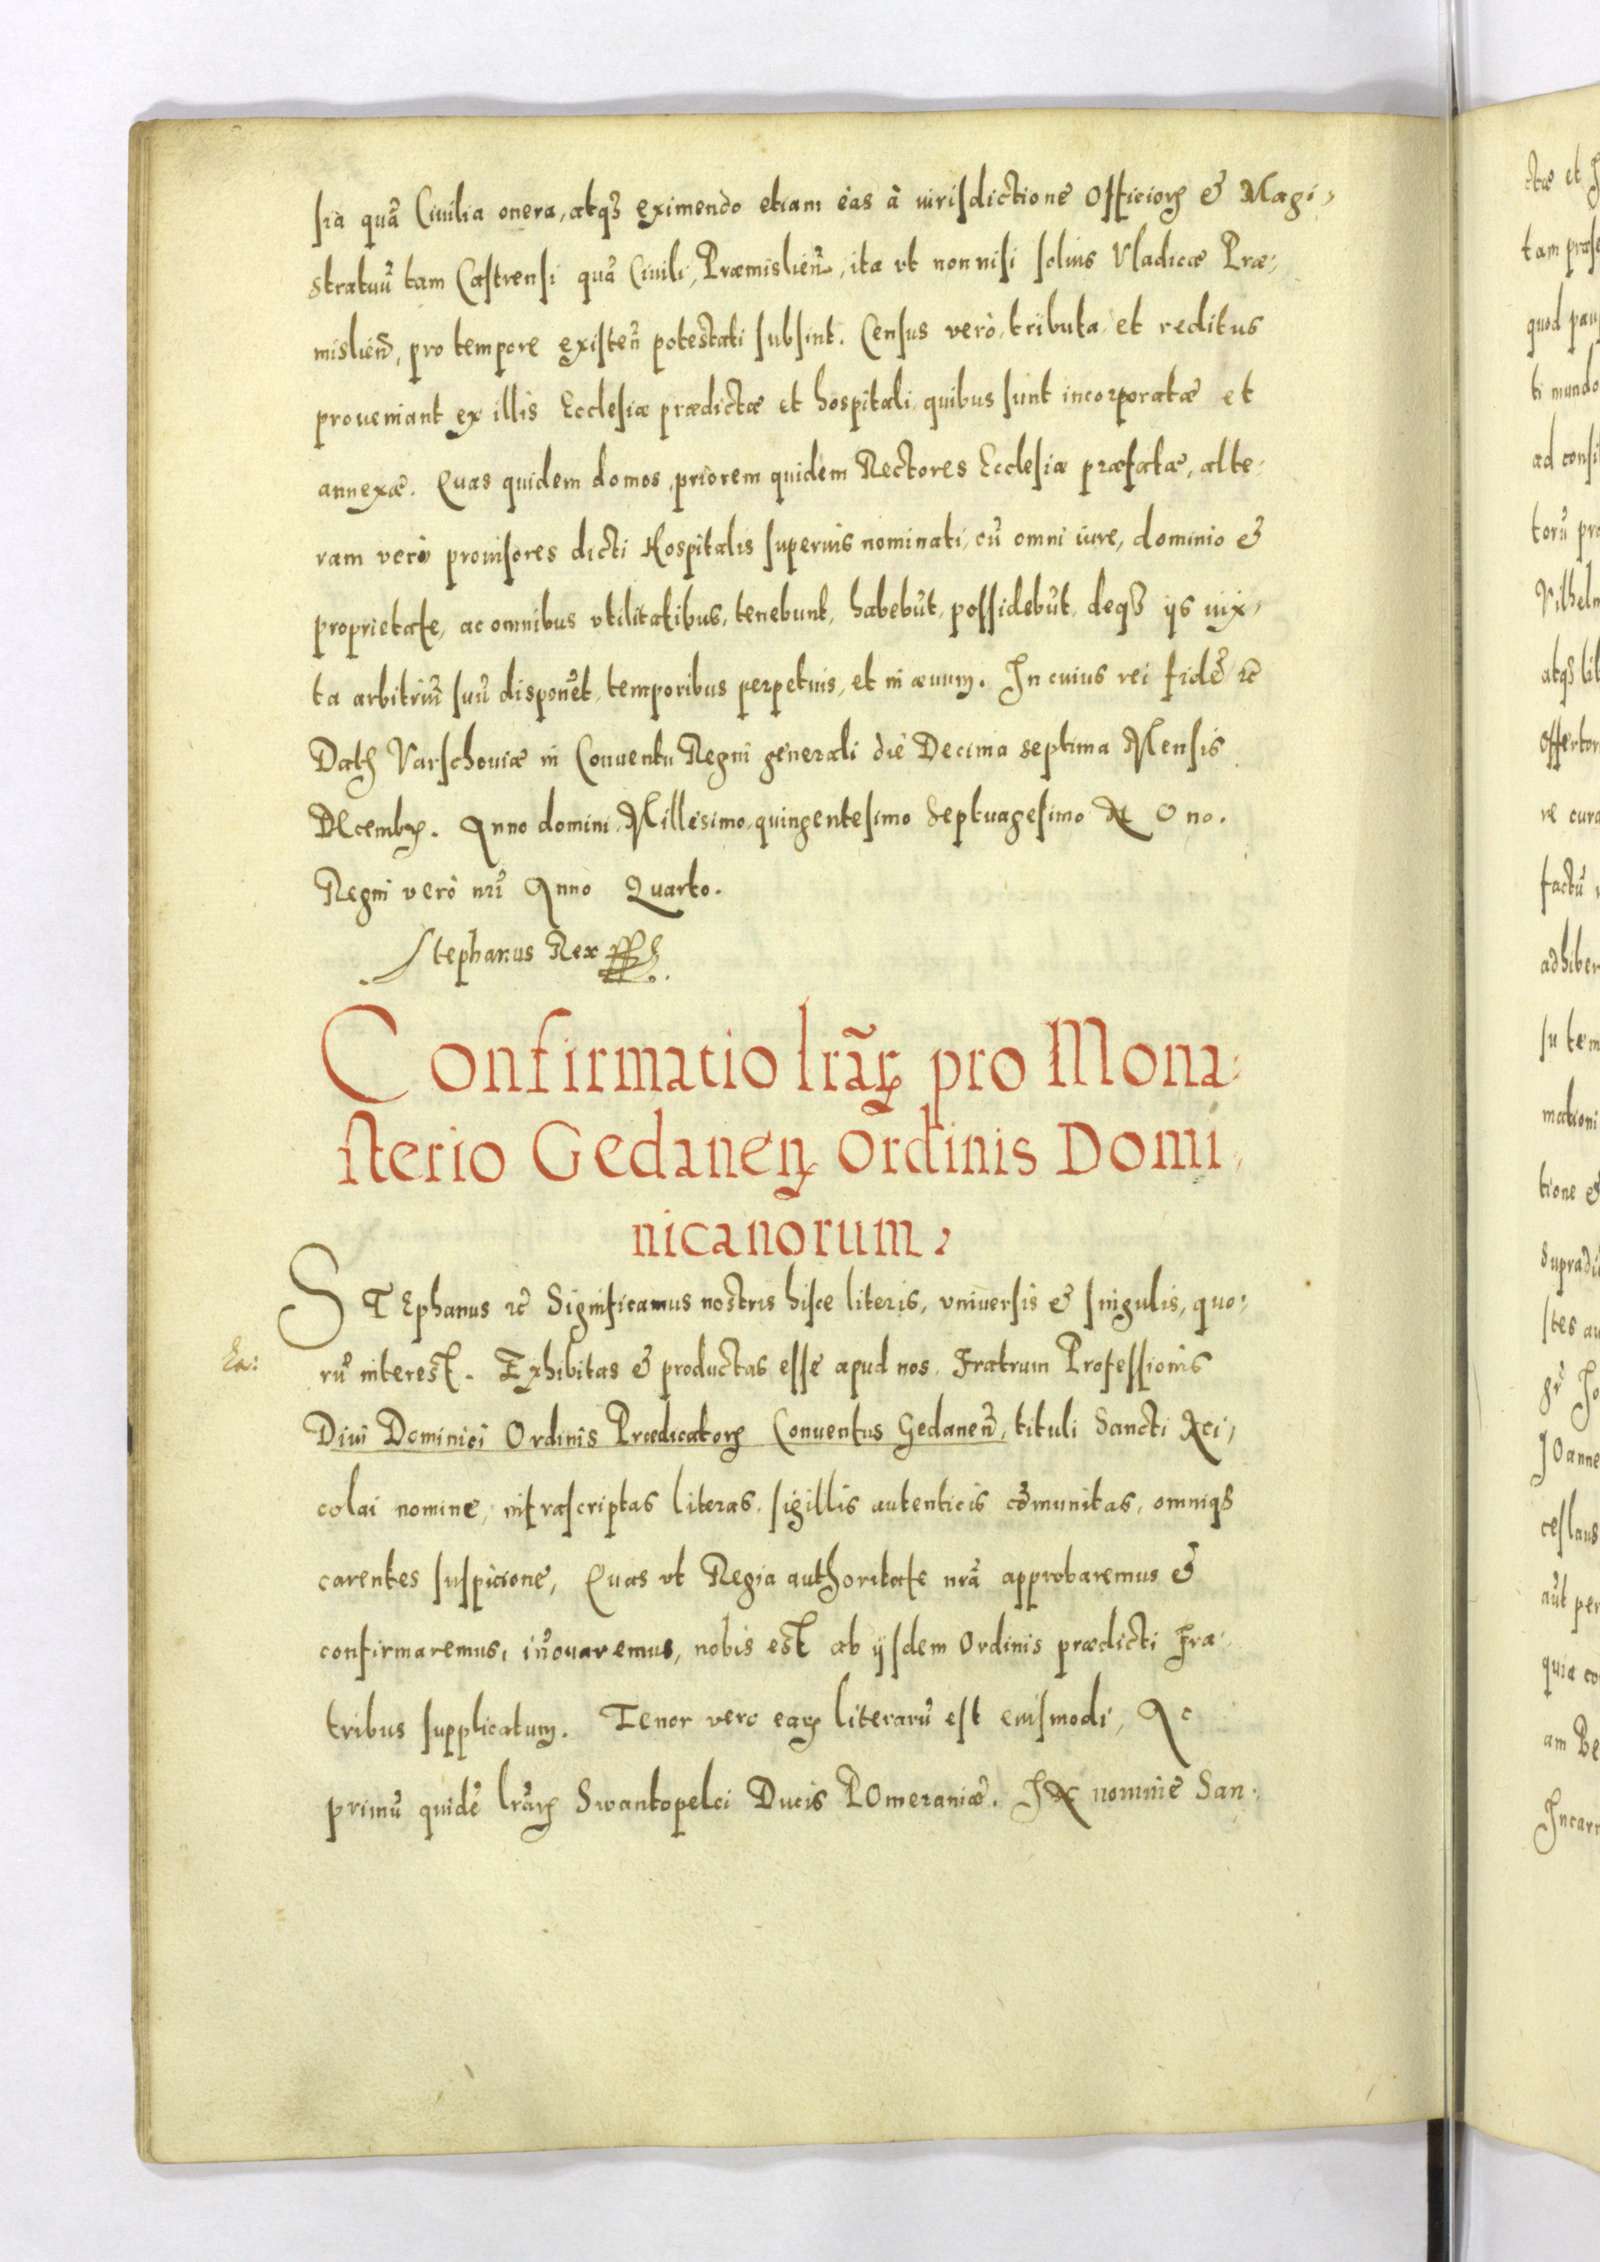 sia quã Ciuilia onera, atqꝫ eximendo etiam eas à iurisdictione Officioꝝ & Magi,
stratuũ tam Castrensi quã Ciuili, Præmislieñ, ita vt non nisi solius Vladicæ Præ,
mislieñ, pro tempore existeñ potestati subsint. Census verò, tributa, et reditus
proueniant ex illis Ecclesiæ prædictæ et hospitali, quibus sunt incorporatæ et
annexæ. Quas quidem domos, priorem quidem Rectores Ecclesiæ præfatæ, alte,
ram verò prouisores dicti Hospitalis superius nominati, cũ omni iure, dominio &
proprietate, ac omnibus vtilitatibus, tenebunt, habebũt, possidebũt, deqꝫ ijs iux,
ta arbitriũ suũ disponẽt, temporibus perpetuis, et in æuum. In cuius rei fidẽ ꝛc̃
Datꝭ Varschouiæ in Conuentu Regni generali die Decima septima Mensis
DEcembꝝ. Anno domini, Millesimo, quingentesimo Septuagesimo NOno.
Regni verò nr̃i Anno Quarto.
Stephanus Rex
Confirmatio lrãꝝ pro Mona,
sterio Gedaneñ Ordinis Domi,
nicanorum.
STEphanus ꝛc̃ Significamus nostris hisce literis, vniuersis & singulis, quo,
rũ interest. Exhibitas & productas esse apud nos, Fratrum Professionis
Diui Dominici Ordinis Prædicatoꝝ Conuentus Gedaneñ, tituli Sancti Ni,
colai nomine, infrascriptas literas, sigillis autenticis cõmunitas, omniqꝫ
carentes suspicione, Quas vt Regia authoritate nr̃a approbaremus &
confirmaremus, iñouaremus, nobis est ab ijsdem Ordinis prædicti Fra,
tribus supplicatum. Tenor vero eaꝝ literarũ est eiusmodi, Ac
primũ quidẽ lr̃aꝝ Swantopelci Ducis POmeraniæ. IN nomine San,